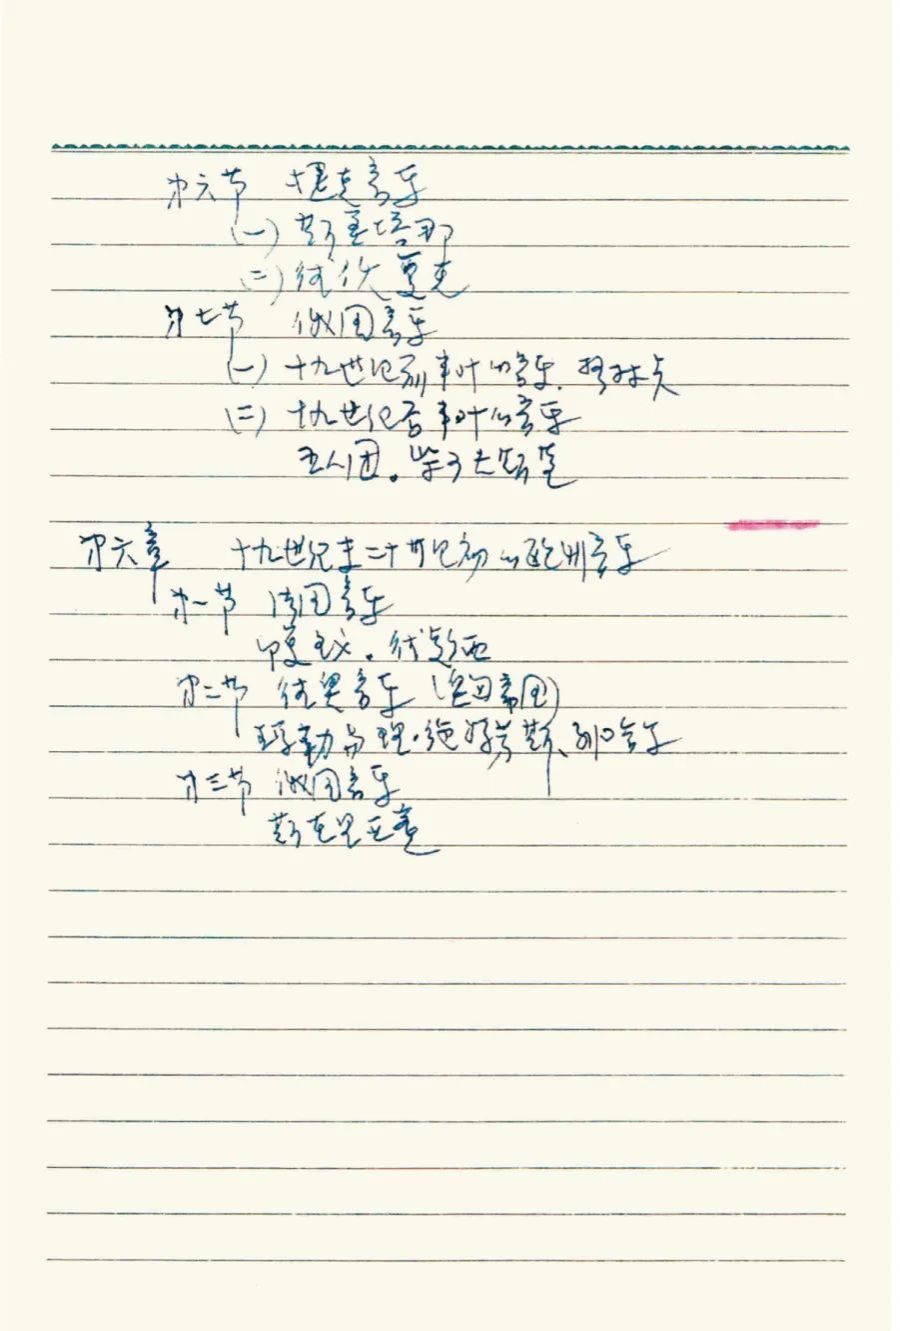 第六节 捷克音乐
(一) 斯美塔那
(二) 德伏夏克
第七节 俄国音乐
(一) 十九世纪前半叶的音乐.格林卡
(二) 十九世纪后半叶的音乐
五人团。柴可夫斯基
第六章 十九世纪末二十世纪初的欧洲音乐
第一节 法国音乐
印象主义.德彪西
第二节 德奥音乐
理·施特劳斯、
第三节 俄国音乐
斯克里亚宾